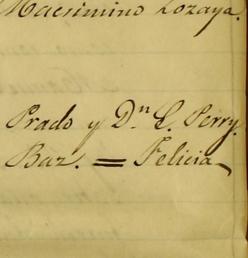 Macsimino Lozaya.
Prado y Dn L. Perry.
Baz. = Felicia